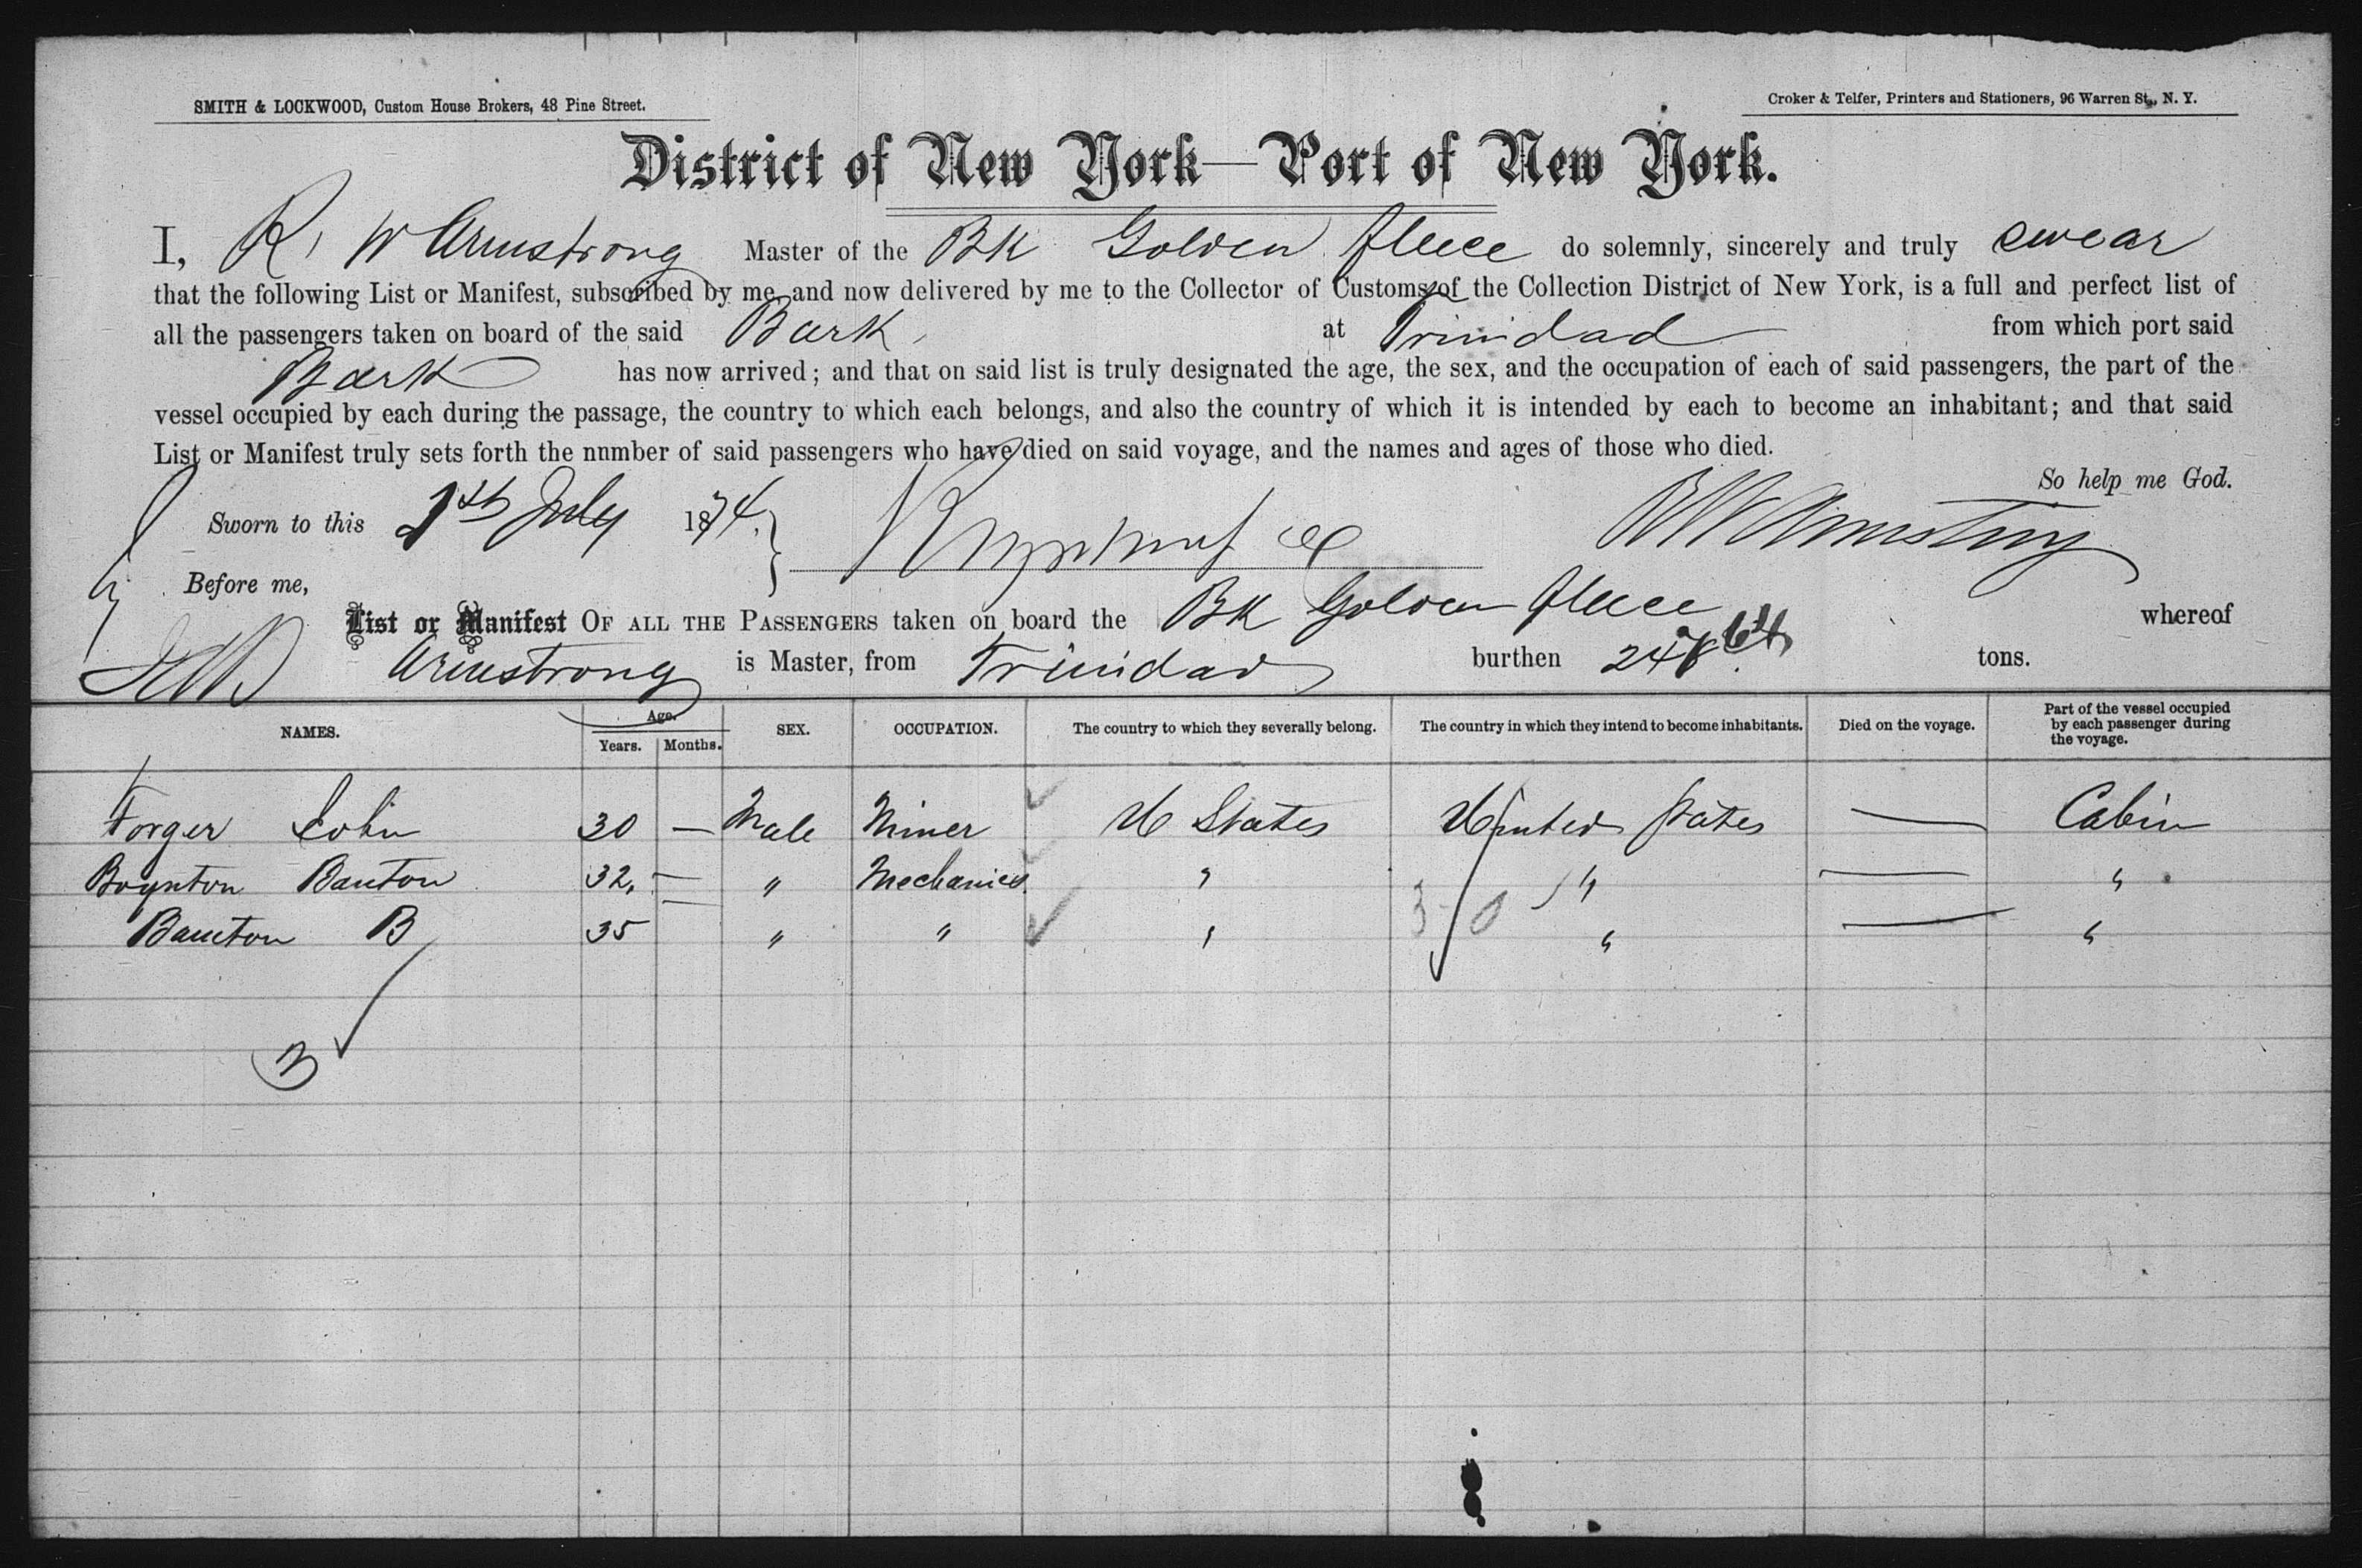 SMITH & LOCKWOOD, Custom House Brokers, 48 Pine Street.
Croker & Telfer, Printers and Stationers, 96 Warren St., N. Y.
District of New York—Port of New York.
I, R. W Armstrong Master of the Bk Golden Fleece do solemnly, sincerely and truly swear
that the following List or Manifest, subscribed by me and now delivered by me to the Collector of Customs of the Collection District of New York, is a full and perfect list of
all the passengers taken on board of the said Bark at Trinidad from which port said
Bark has now arrived; and that on said list is truly designated the age, the sex, and the occupation of each of said passengers, the part of the
vessel occupied by each during the passage, the country to which each belongs, and also the country of which it is intended by each to become an inhabitant; and that said
List or Manifest truly sets forth the nnmber of said passengers who have died on said voyage, and the names and ages of those who died.
So help me God.
Sworn to this July 1874. R W Armstrong
Before me,
List or Manifest OF ALL THE PASSENGERS taken on board the Bk Golden Fleece whereof
Armstrong is Master, from Trinidad burthen tons.
NAMES. Age. Years. Months. SEX. OCCUPATION. The country to which they severally belong. The country in which they intend to become inhabitants. Died on the voyage. Part of the vessel occupied by each passenger during the voyage.
Forger John 30 — Male Miner U States United States — Cabin
Boynton Banton 32. — " Mechanics " " — "
Banton B 35 — " " " " — "
3 0
3